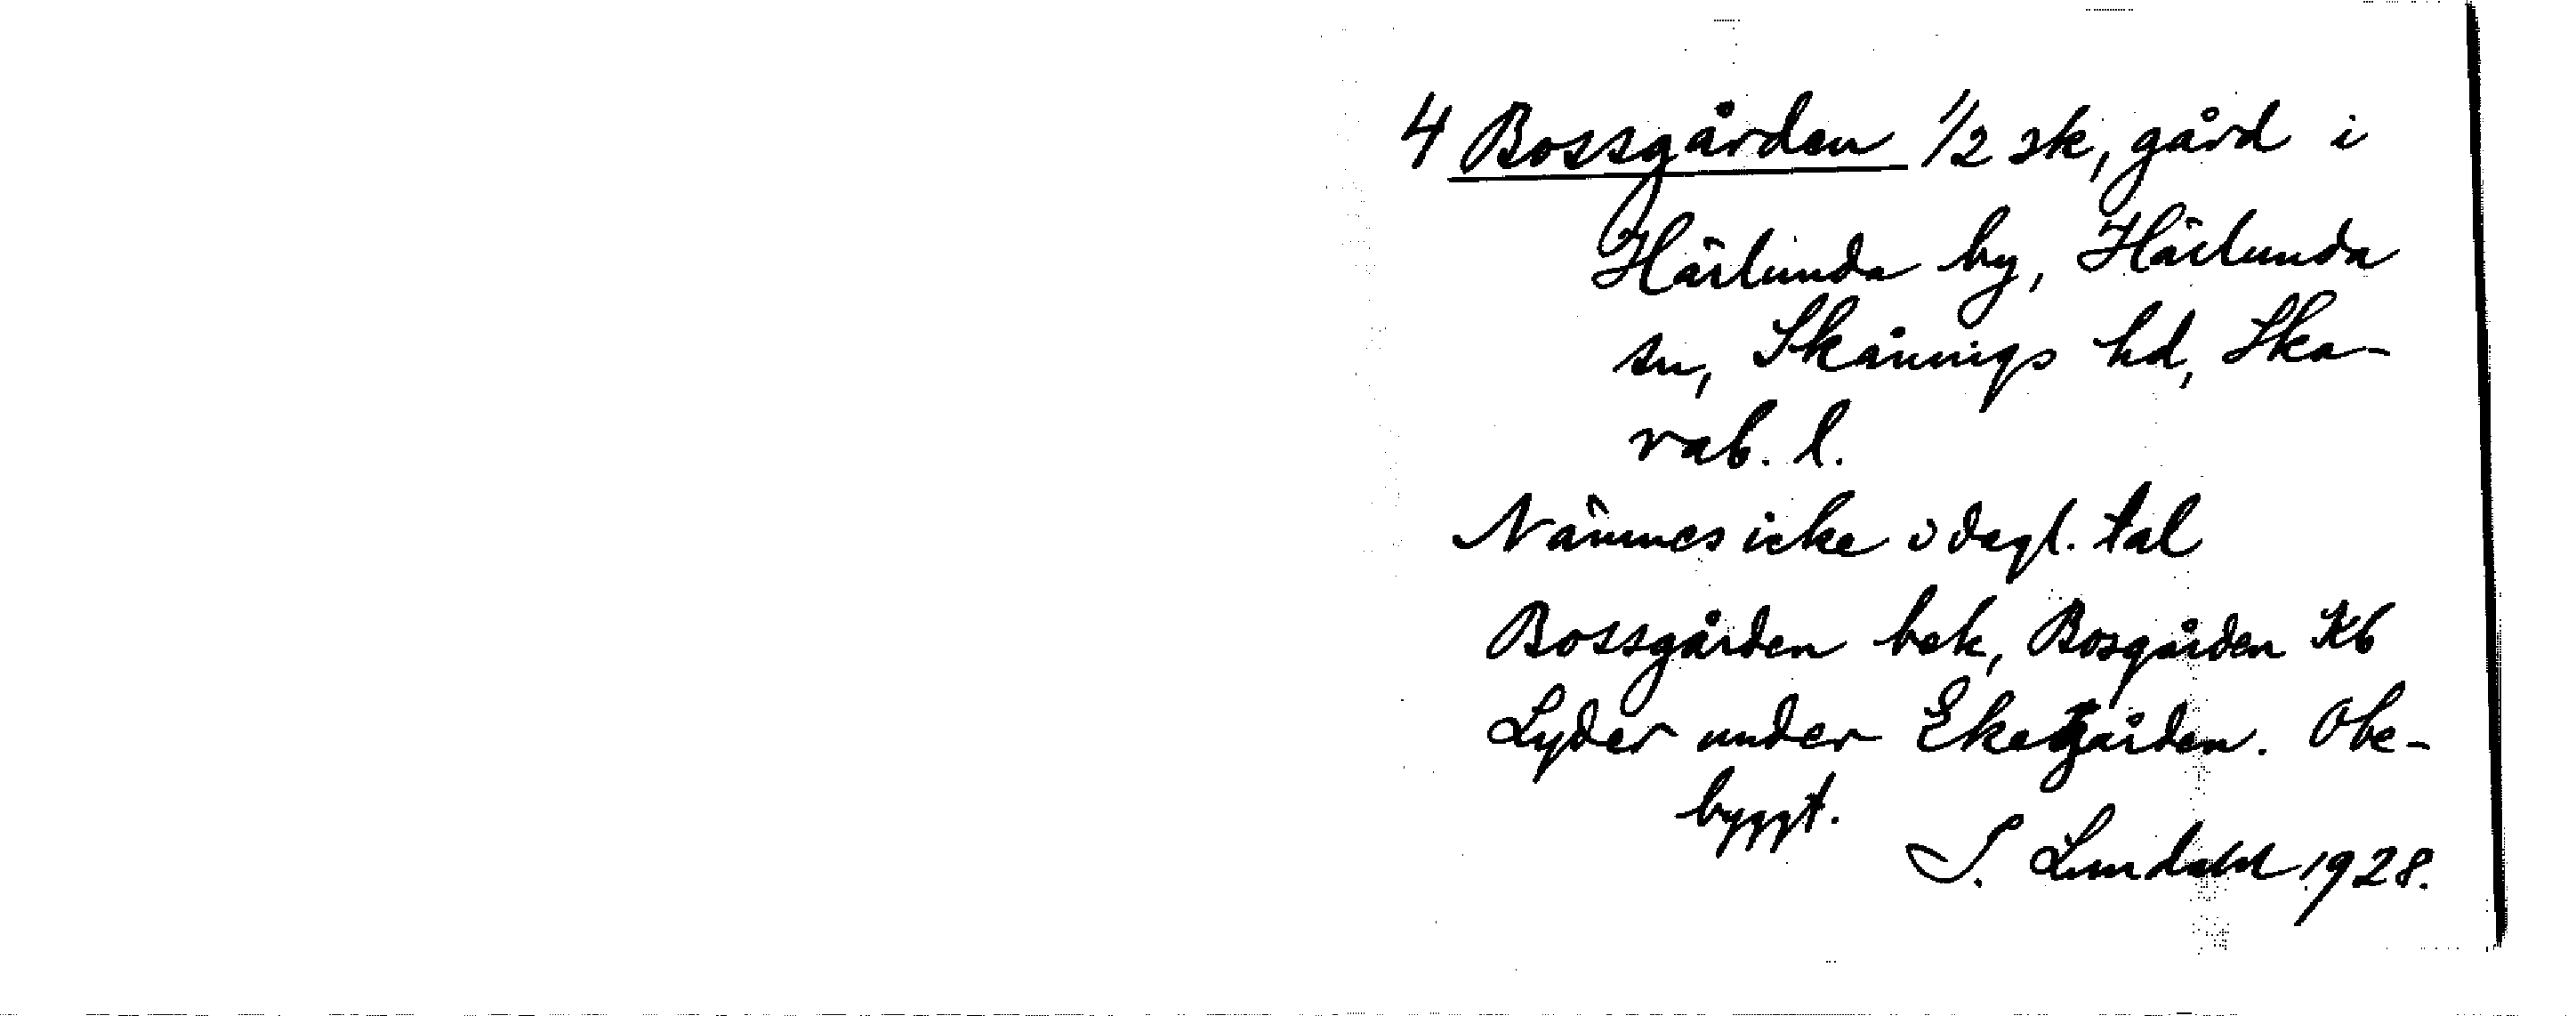 4 Bossgården 1/2 sk, gård i
Härlunda by, Härlunda
sn, Skånings hd, Ska-
rab. l.
Nämnes icke i dagl. tal
Bossgården bek, Bosgården Kb
Lyder under Ekegården. Obe-
byggt.
S. Lundahl 1928.